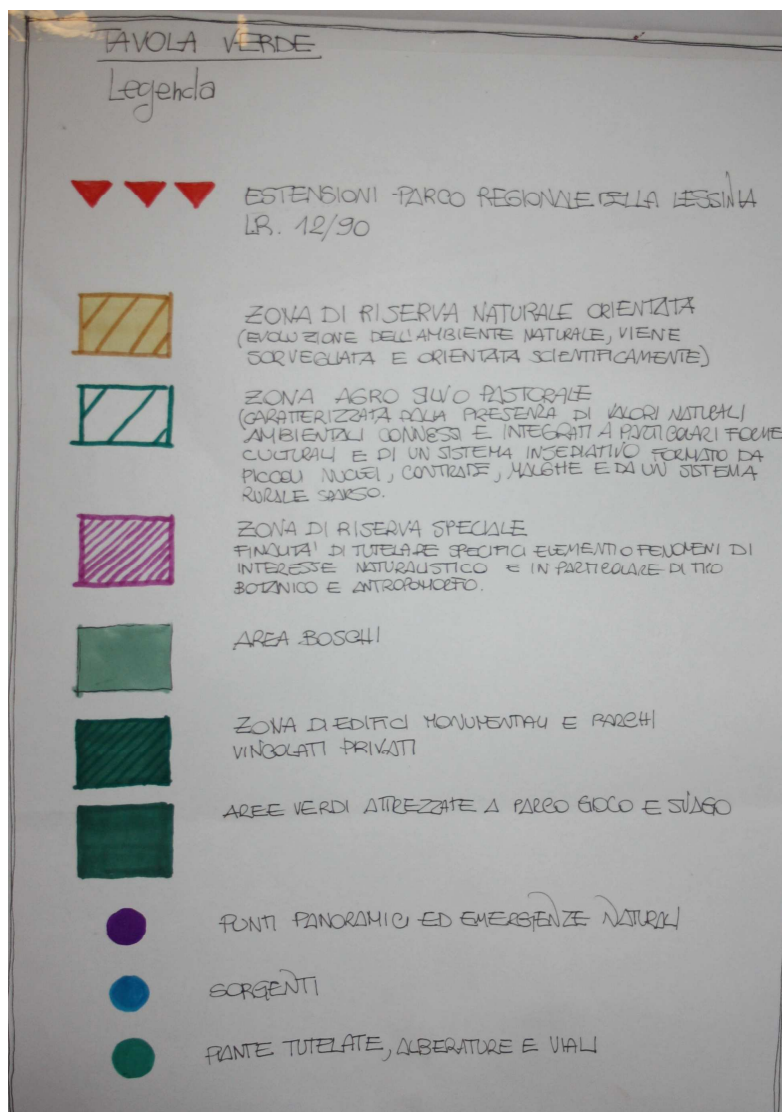 TAVOLA VERDE
Legenda
ESTENSIONI PARCO REGIONALE DELLA LESSINIA
LR. 12/90
ZONA DI RISERVA NATURALE ORIENTATA
(EVOLUZIONE DELL'AMBIENTE NATURALE, VIENE
SORVEGLIATA E ORIENTATA SCIENTIFICAMENTE)
ZONA AGRO SILVO PASTORALE
(CARATTERIZZATA DALLA PRESENZA DI VALORI NATURALI
AMBIENTALI CONNESSI E INTEGRATI A PARTICOLARI FORME
CULTURALI E DI UN SISTEMA INSEDIATIVO FORMATO DA
PICCOLI NUCLEI, CONTRADE, MALGHE E DA UN SISTEMA
RURALE SPARSO.
ZONA DI RISERVA SPECIALE
FINALITA' DI TUTELARE SPECIFICI ELEMENTI O FENOMENI DI
INTERESSE NATURALISTICO E IN PARTICOLARE DI TIPO
BOTANICO E ANTROPOMORFO.
AREA BOSCHI
ZONA DI EDIFICI MONUMENTALI E PARCHI
VINCOLATI PRIVATI
AREE VERDI ATTREZZATE A PARCO GIOCO E SVAGO
PUNTI PANORAMICI ED EMERGENZE NATURALI
SORGENTI
PIANTE TUTELATE, ALBERATURE E VIALI